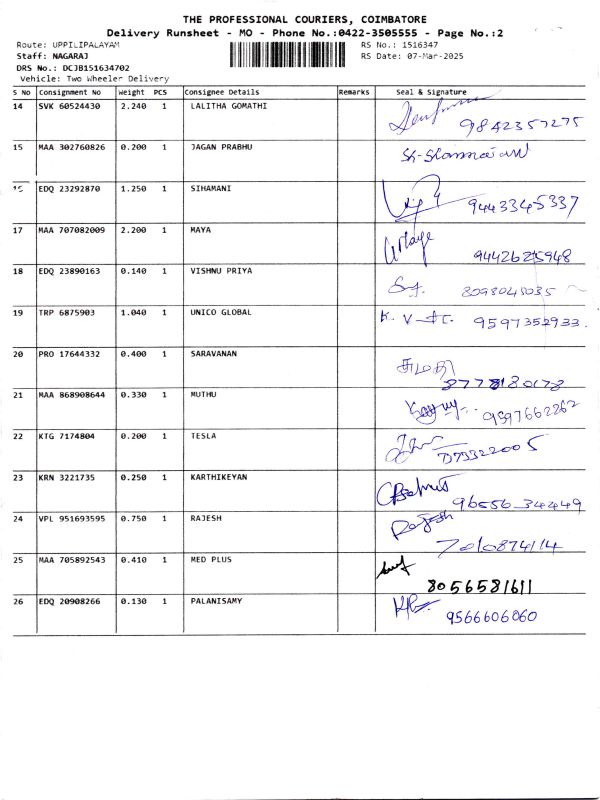 THE PROFESSIONAL COURIERS, COIMBATORE
Delivery Runsheet - MO - Phone No.:0422-3505555 - Page No.:2
Route: UPPILIPALAYAM RS No.: 1516347
Staff: NAGARAJ RS Date: 07-Mar-2025
DRS No.: DCJB151634702
Vehicle: Two Wheeler Delivery
S No Consignment No Weight PCS Consignee Details Remarks Seal & Signature
14 SVK 60524430 2.240 1 LALITHA GOMATHI
9842357275
15 MAA 302760826 0.200 1 JAGAN PRABHU
16 EDQ 23292870 1.250 1 SIHAMANI
9443345337
17 MAA 707082009 2.200 1 MAYA
Maya
9442625948
18 EDQ 23890163 0.140 1 VISHNU PRIYA
8098045035
19 TRP 6875903 1.040 1 UNICO GLOBAL
9597352933
20 PRO 17644332 0.400 1 SARAVANAN
சுமதி
21 MAA 868908644 0.330 1 MUTHU
9597662262
22 KTG 7174804 0.200 1 TESLA
23 KRN 3221735 0.250 1 KARTHIKEYAN
96556 34449
24 VPL 951693595 0.750 1 RAJESH
Rajesh
7010874114
25 MAA 705892543 0.410 1 MED PLUS
8056581611
26 EDQ 20908266 0.130 1 PALANISAMY
9566606060